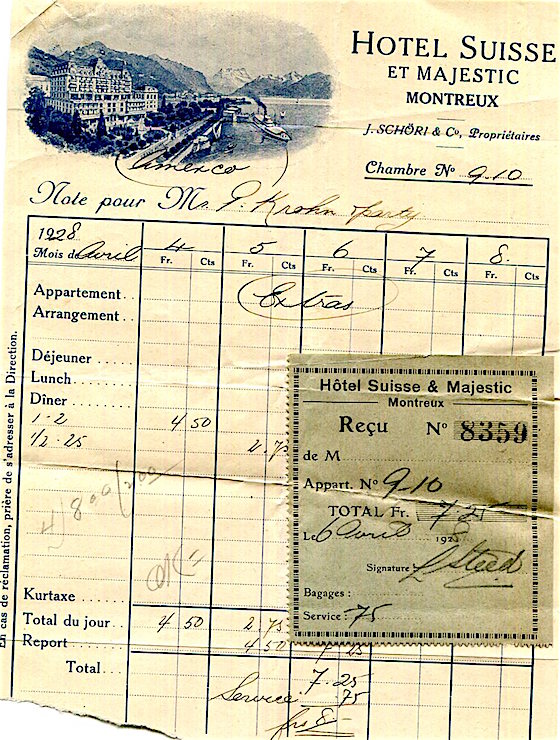 HOTEL SUISSE
ET MAJESTIC
MONTREUX
J. SCHÖRI & Co, Propriétaires
Chambre No 9.10
Amexco
Note pour Mr. J. Krohn party
1928
Mois de Avril 4 5 6 7 8
Fr. Cts Fr. Cts Fr. Cts Fr. Cts Fr. Cts
Appartement Extras
Arrangement
Déjeuner
Lunch
Dîner
1-2 4 50
1/2-25 2.75
OK
Kurtaxe
Total du jour 4 50 2.75
Report 4 50
Total 7.25
Service .75
frs 8.—
En cas de réclamation, prière de s'adresser à la Direction.
Hôtel Suisse & Majestic
Montreux
Reçu No 8359
de M
Appart. No 9.10
TOTAL Fr. 7/25
Le 6 Avril 1928
Signature: Steed
Bagages:
Service: 75